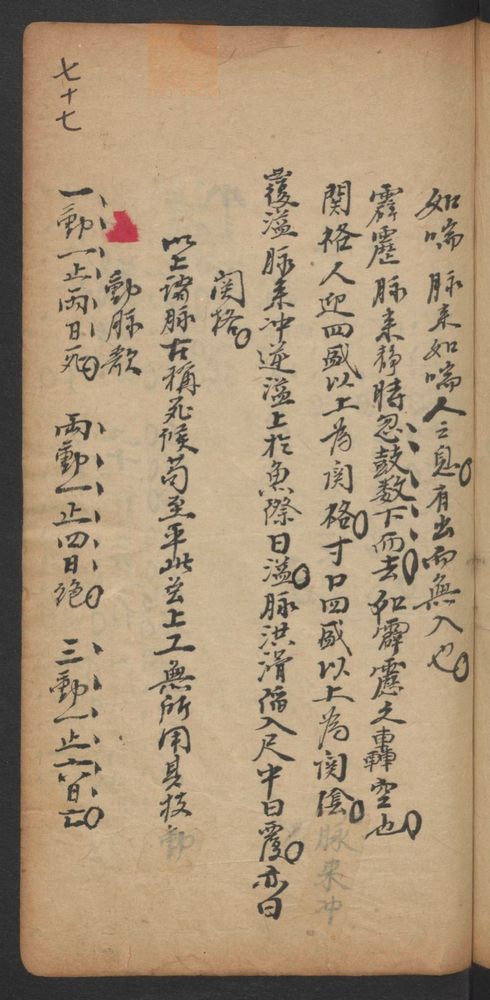 如喘 脉来如喘人之息。有出而無入也。
霹靂 脉来静時忽鼓数下而去。如霹靂之轟空也。
関格 人迎四盛以上為関格。寸口四盛以上為関陰。脉来冲
覆溢 脉来冲逆溢上於魚際曰溢。脉洪滑偪入尺中曰覆。亦曰
関格。
以上諸脉古稱死候苟至乎此並上工無所用其技 動
動脉歌
一動一止両日死。 両動一止四日絶。 三動一止六日亡。
七十七